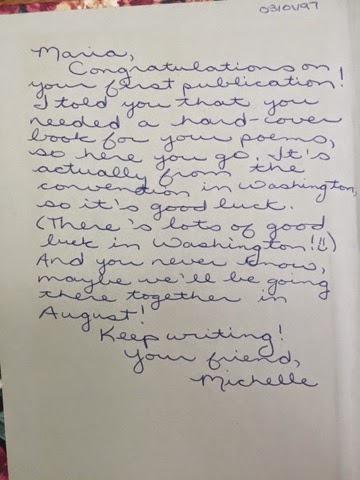 03/01/97
Maria,
Congratulations on
your first publication!
I told you that you
needed a hard-cover
book for your poems,
so here you go. It's
actually from the
convention in Washington,
so it's good luck.
(There's lots of good
luck in Washington!!)
And you never know,
maybe we'll be going
there together in
August!
Keep writing!
Your friend,
Michelle